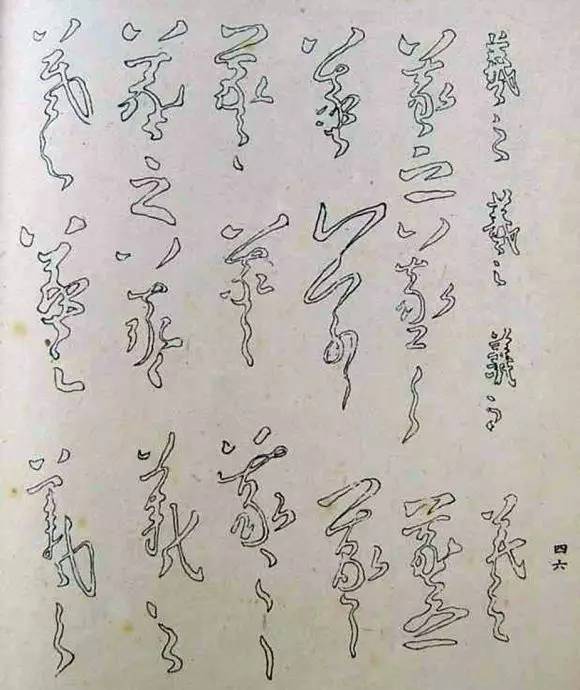 羲之 羲之 羲之 羲之
羲之 羲之 羲之
羲之 羲之 羲之
羲之 羲之 羲之
羲之 羲之 羲之
羲之 羲之 羲之
四六